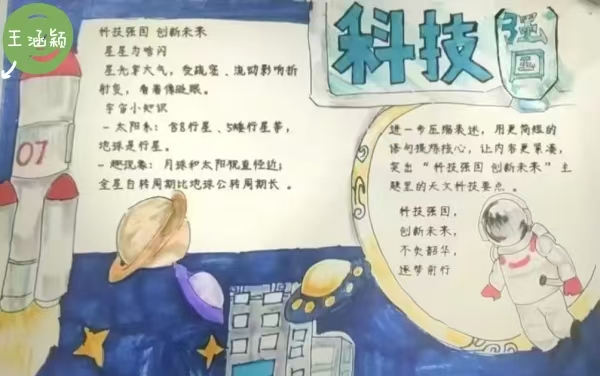 王涵颖
科技强国 创新未来
星星为啥闪
星光穿大气，受疏密、流动影响折
射变，看着像眨眼。
宇宙小知识
- 太阳系：含8行星、5矮行星等，
地球是行星。
- 趣现象：月球和太阳视直径近；
金星自转周期比地球公转周期长。
07
科技强国
进一步压缩表述，用更简短的
语句提炼核心，让内容更紧凑，
突出“科技强国 创新未来”主
题里的天文科技要点。
科技强国，
创新未来，
不负韶华，
逐梦前行